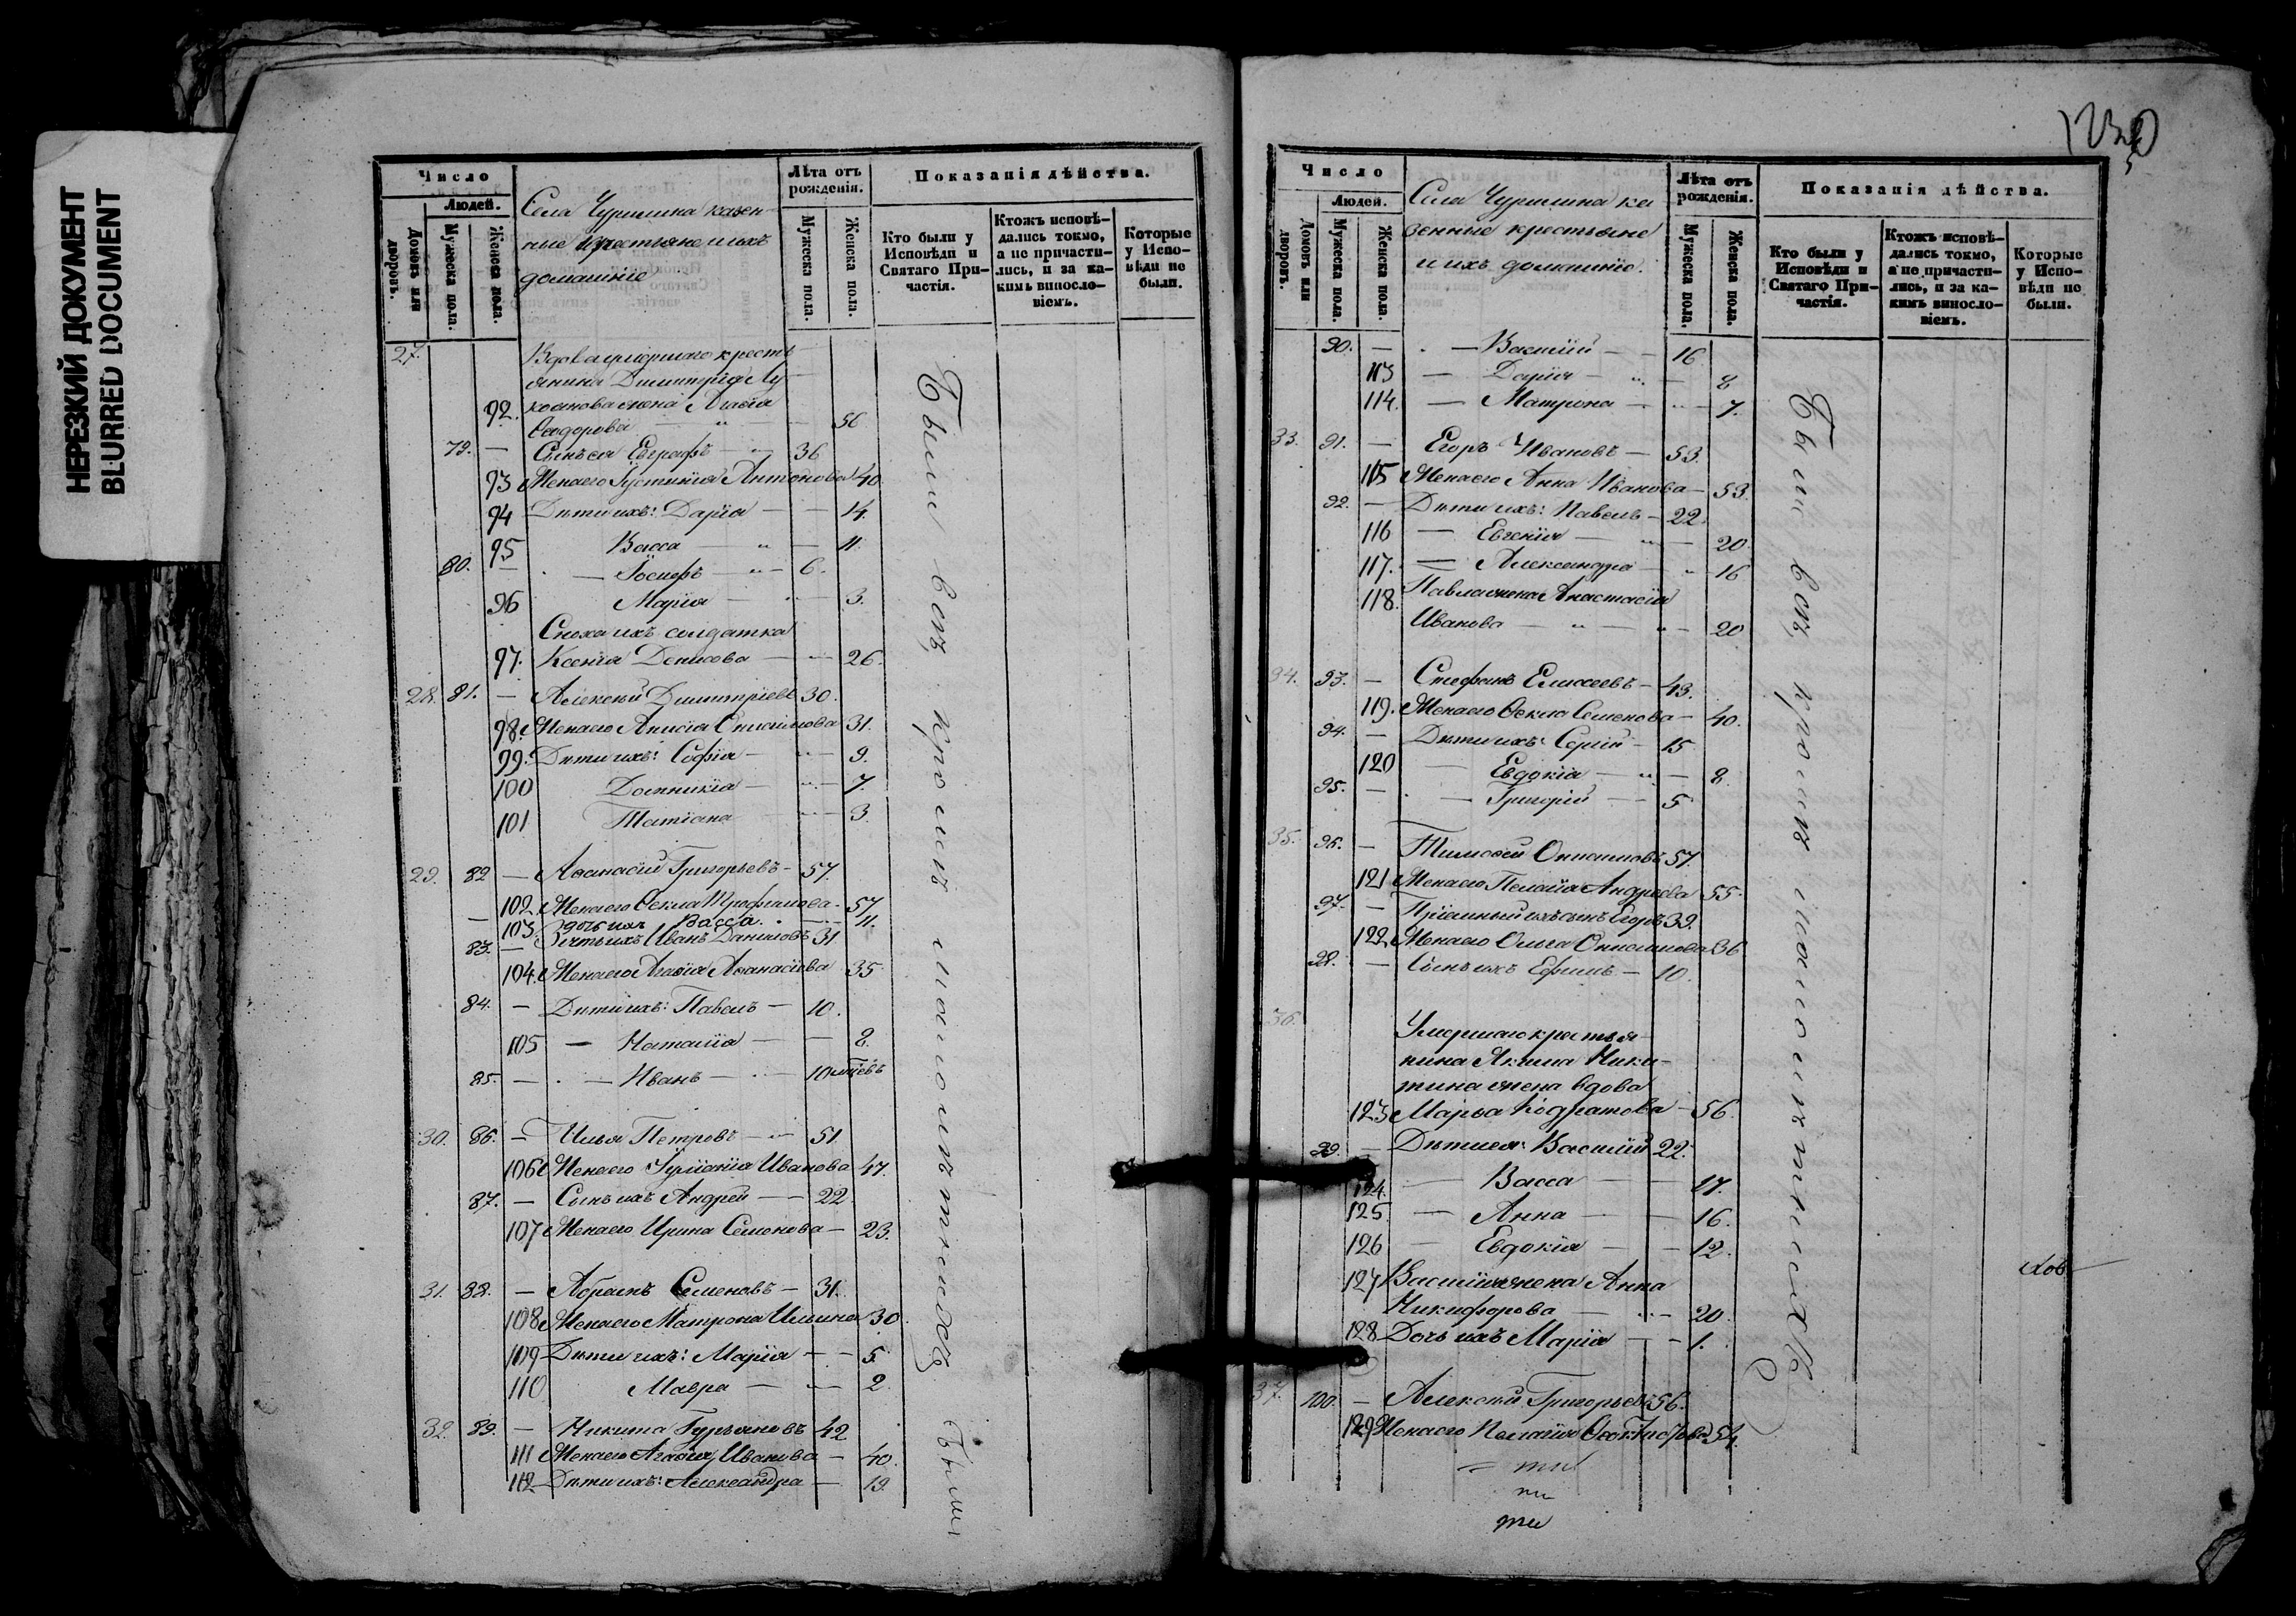 НЕРЕЗКИЙ ДОКУМЕНТ
BLURRED DOCUMENT
Число
Людей.
Домовъ или дворовъ.
Мужеска пола.
Женска пола.
Села Чурилина казен-
ные крестьяне и ихъ
домашніе
Лѣта отъ рожденія.
Мужеска пола.
Женска пола.
Показанія дѣйства.
Кто были у Исповѣди и Святаго Причастія.
Ктожъ исповѣдались токмо, а не причастились, и за какимъ винословіемъ.
Которые у Исповѣди не были.
27. Вдова умершаго кресть
янина Димитрія Лу
коянова жена Агаѳія
92. Ѳеодорова 56
79. — Сынъ ея Евграфъ 36
93 Жена его Іустинія Антонова 40
94 Дѣти ихъ: Дарія — 14.
95 Васса — 11.
80. — Іосифъ — 6.
96 Марія — 3.
Сноха ихъ солдатка
97. Ксенія Денисова — 26.
28. 81. — Алексѣй Димитріевъ 30.
98. Жена его Анисія 31.
99. Дѣти ихъ: Софія — 9.
100 Домникія — 7.
101 Татіана 3.
29. 82 — Аѳанасій Григорьевъ — 57.
102. Жена его Ѳекла Трофимова — 57
103. дочь ихъ Васса. 11.
83. — Зять ихъ Иванъ Даниловъ 31
104. Жена его Агаѳія Аѳанасіева 35
84. — Дѣти ихъ: Павелъ — 10.
105 — Наталія — 8.
85. — Иванъ — 10 мѣсяцевъ
30. 86. — Илья Петровъ — 51.
106 Жена его Іуліанія Иванова 47.
87. — Сынъ ихъ Андрей — 22
107 Жена его Ирина Семенова — 23.
31. 88. — Абрамъ Семеновъ — 31.
108 Жена его Матрона Ильина 30
109 Дѣти ихъ: Марія — 5
110 Мавра — 2.
32. 89. — Никита Гурьяновъ 42
111 Жена его Агаѳія Иванова — 40.
112 Дѣти ихъ: Александра — 19.
Были всѣ кромѣ малолѣтнихъ
Были
1230
5
Число
Людей.
Домовъ или дворовъ.
Мужеска пола.
Женска пола.
Села Чурилина ка
зенные крестьяне
и ихъ домашніе.
Лѣта отъ рожденія.
Мужеска пола.
Женска пола.
Показанія дѣйства.
Кто были у Исповѣди и Святаго Причастія.
Ктожъ исповѣдались токмо, а не причастились, и за какимъ винословіемъ.
Которые у Исповѣди не были.
90. — Василій — 16
113 — Дарія — 8
114. — Матрона — 7.
33. 91. — Егоръ Ивановъ — 53.
115 Жена его Анна Иванова — 53.
92. — Дѣти ихъ: Павелъ — 22.
116 — Евгенія — 20
117. — Александра — 16
118. Павла жена Анастасія
Иванова — 20
34. 93. — Стефанъ Елисеевъ — 43.
119. Жена его Ѳекла Семенова — 40.
94. — Дѣти ихъ: Сергій — 15
120 — Евдокія — 8.
95. — Григорій — 5
35. 96. — Тимоѳей Онисимовъ 57.
121 Жена его Пелагія Андреева 55.
97. — Пріемный ихъ сынъ Егоръ 39.
122 Жена его Ольга Онисимова 36
98. — Сынъ ихъ Ефимъ — 10.
36. Умершаго крестья
нина Якима Ники-
тина жена вдова
123 Марья Кодратова — 56.
99. — Дѣти ея: Василій 22.
124. — Васса — 17.
125. — Анна — 16.
126 — Евдокія — 12.
127 Василія жена Анна
Никифорова — 20.
128 Дочь ихъ Марія — 1.
37. 100. — Алексѣй Григорьевъ 56.
129 Жена его Пелагія 54.
Были всѣ кромѣ малолѣтнихъ